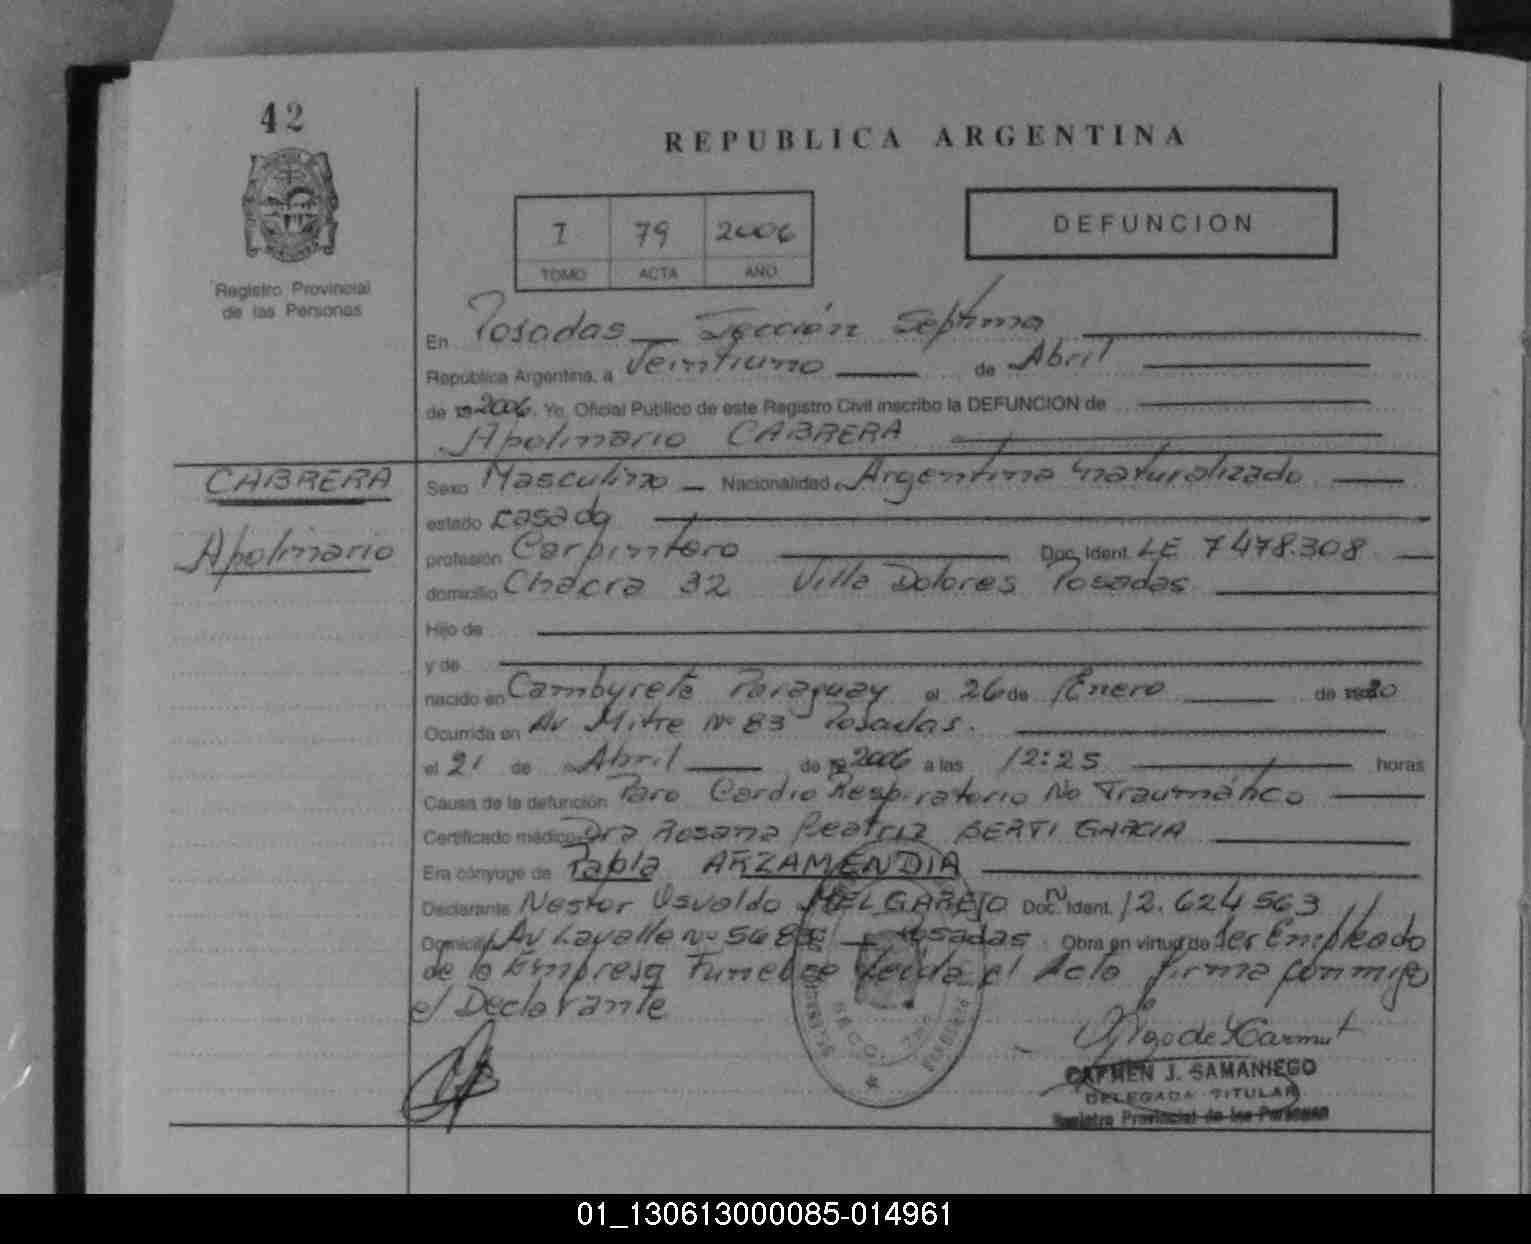 42
REPUBLICA ARGENTINA
I 79 2006
TOMO ACTA AÑO
DEFUNCION
Registro Provincial
de las Personas
En Posadas Sección Septima
República Argentina, a Veintiuno de Abril
de 2006. Yo, Oficial Público de este Registro Civil inscribo la DEFUNCION de
Apolinario CABRERA
CABRERA
Apolinario
Sexo Masculino Nacionalidad Argentina naturalizado
estado casado
profesión Carpintero Doc. Ident. LE 7478.308
domicilio Chacra 32 Villa Dolores Posadas
Hijo de
y de
nacido en Cambyreta Paraguay el 26 de Enero de
Ocurrida en Av Mitre Nº 83 Posadas.
el 21 de Abril de 2006 a las 12:25 horas
Causa de la defunción Paro Cardio Respiratorio No Traumático
Certificado médico Dra Rosana Beatriz BERTI GARCIA
Era cónyuge de Pabla ARZAMENDIA
Declarante Nestor Osvaldo MELGAREJO Doc. Ident. 12.624563
Domicilio Av Lavalle Nº Posadas Obra en virtud de Ser Empleado
de la Empresa Funebre Leida el Acta firma conmigo
el Declarante
CARMEN J. SAMANIEGO
DELEGADA TITULAR
Registro Provincial de las Personas
01_130613000085-014961